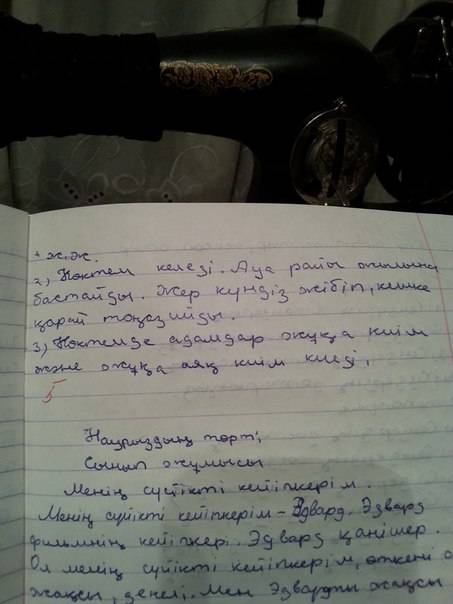 т ж.ж.
2) Көктем келеді. Ауа райы жылына
бастайды. Жер күндіз жібіп, кешке
қарай тоңазийды.
3) Көктемде адамдар жұқа киім
және жұқа аяқ киім киеді.
5
Наурыздың төрті,
Сынып жұмысы
Менің сүйікті кейіпкерім.
Менің сүйікті кейіпкерім - Эдвард. Эдвард
фильмнің кейіпкері. Эдвард қанішер.
Ол менің сүйікті кейіпкерім, өткені о
жақсы, денелі. Мен Эдвардты жақсы